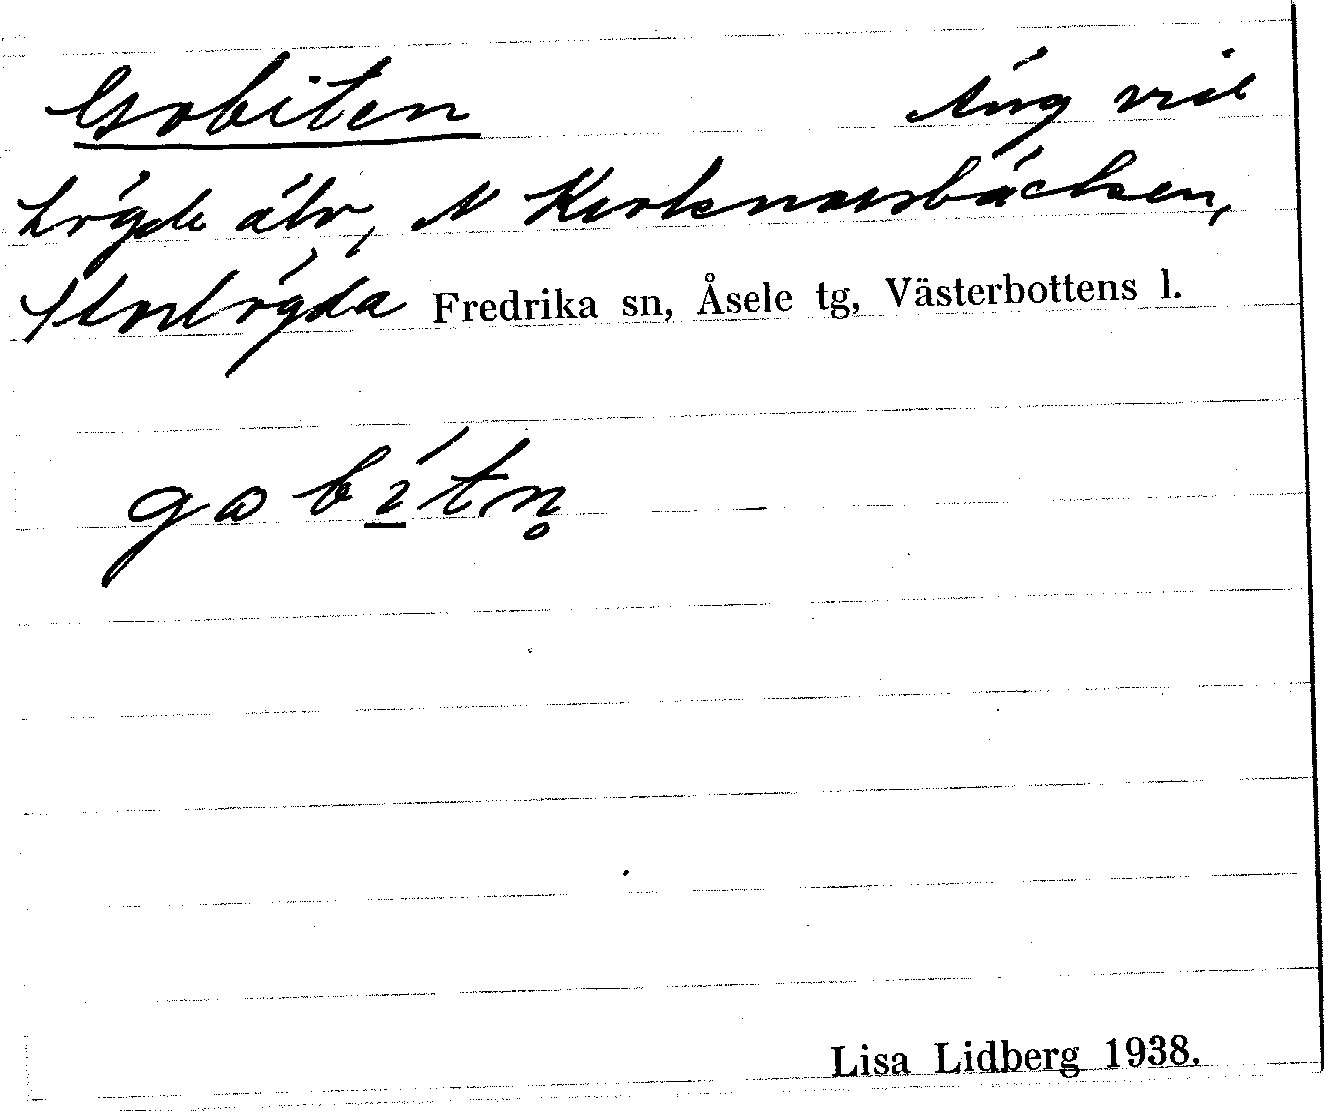 Gobiten Äng vid
Lögde älv, N Kvoknäsbäcken,
Storlögda Fredrika sn, Åsele tg, Västerbottens l.
gobítn̥
Lisa Lidberg 1938.